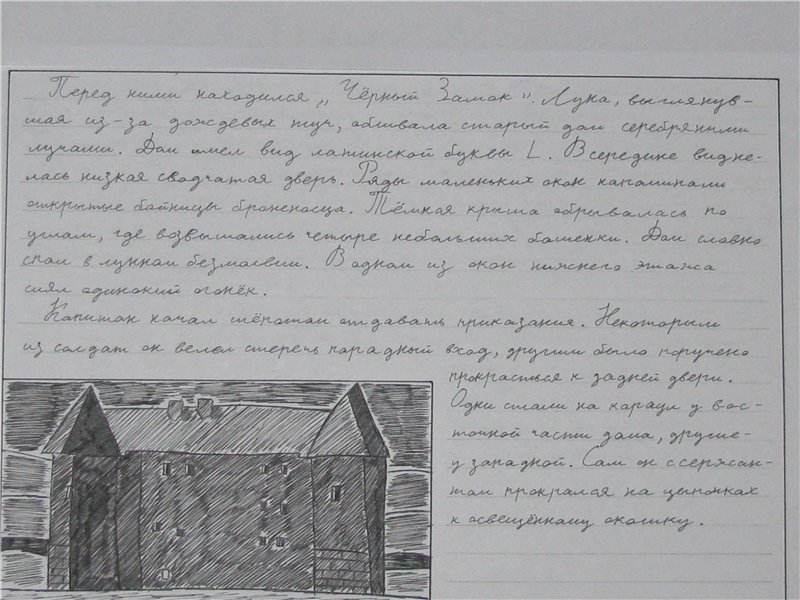 Перед ними находился „Чёрный Замок”. Луна, выглянув-
шая из-за дождевых туч, обливала старый дом серебряными
лучами. Дом имел вид латинской буквы L. В середине видне-
лась низкая сводчатая дверь. Ряды маленьких окон напоминали
открытые бойницы броненосца. Тёмная крыша обрывалась по
углам, где возвышались четыре небольших башенки. Дом словно
спал в лунном безмолвии. В одном из окон нижнего этажа
сиял одинокий огонёк.
Капитан начал шёпотом отдавать приказания. Некоторым
из солдат он велел стеречь парадный вход, другим было поручено
прокрасться к задней двери.
Одни стали на караул у вос-
точной части дома, другие-
у западной. Сам он с сержан-
том прокрался на цыпочках
к освещённому окошку.